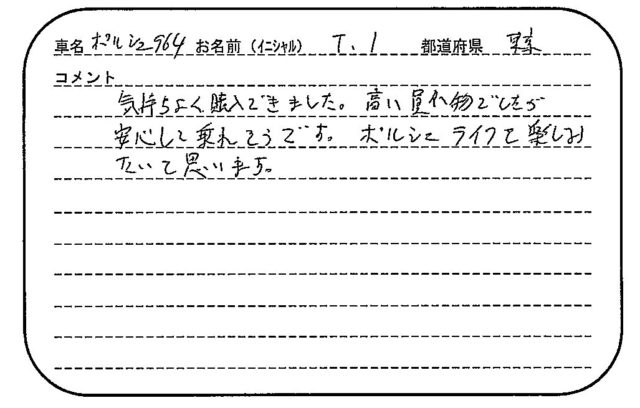 車名 ポルシェ964 お名前（イニシャル） T. I 都道府県 東京
コメント
気持ちよく購入できました。高い買い物でしたが
安心して乗れそうです。ポルシェライフを楽しみ
たいと思います。